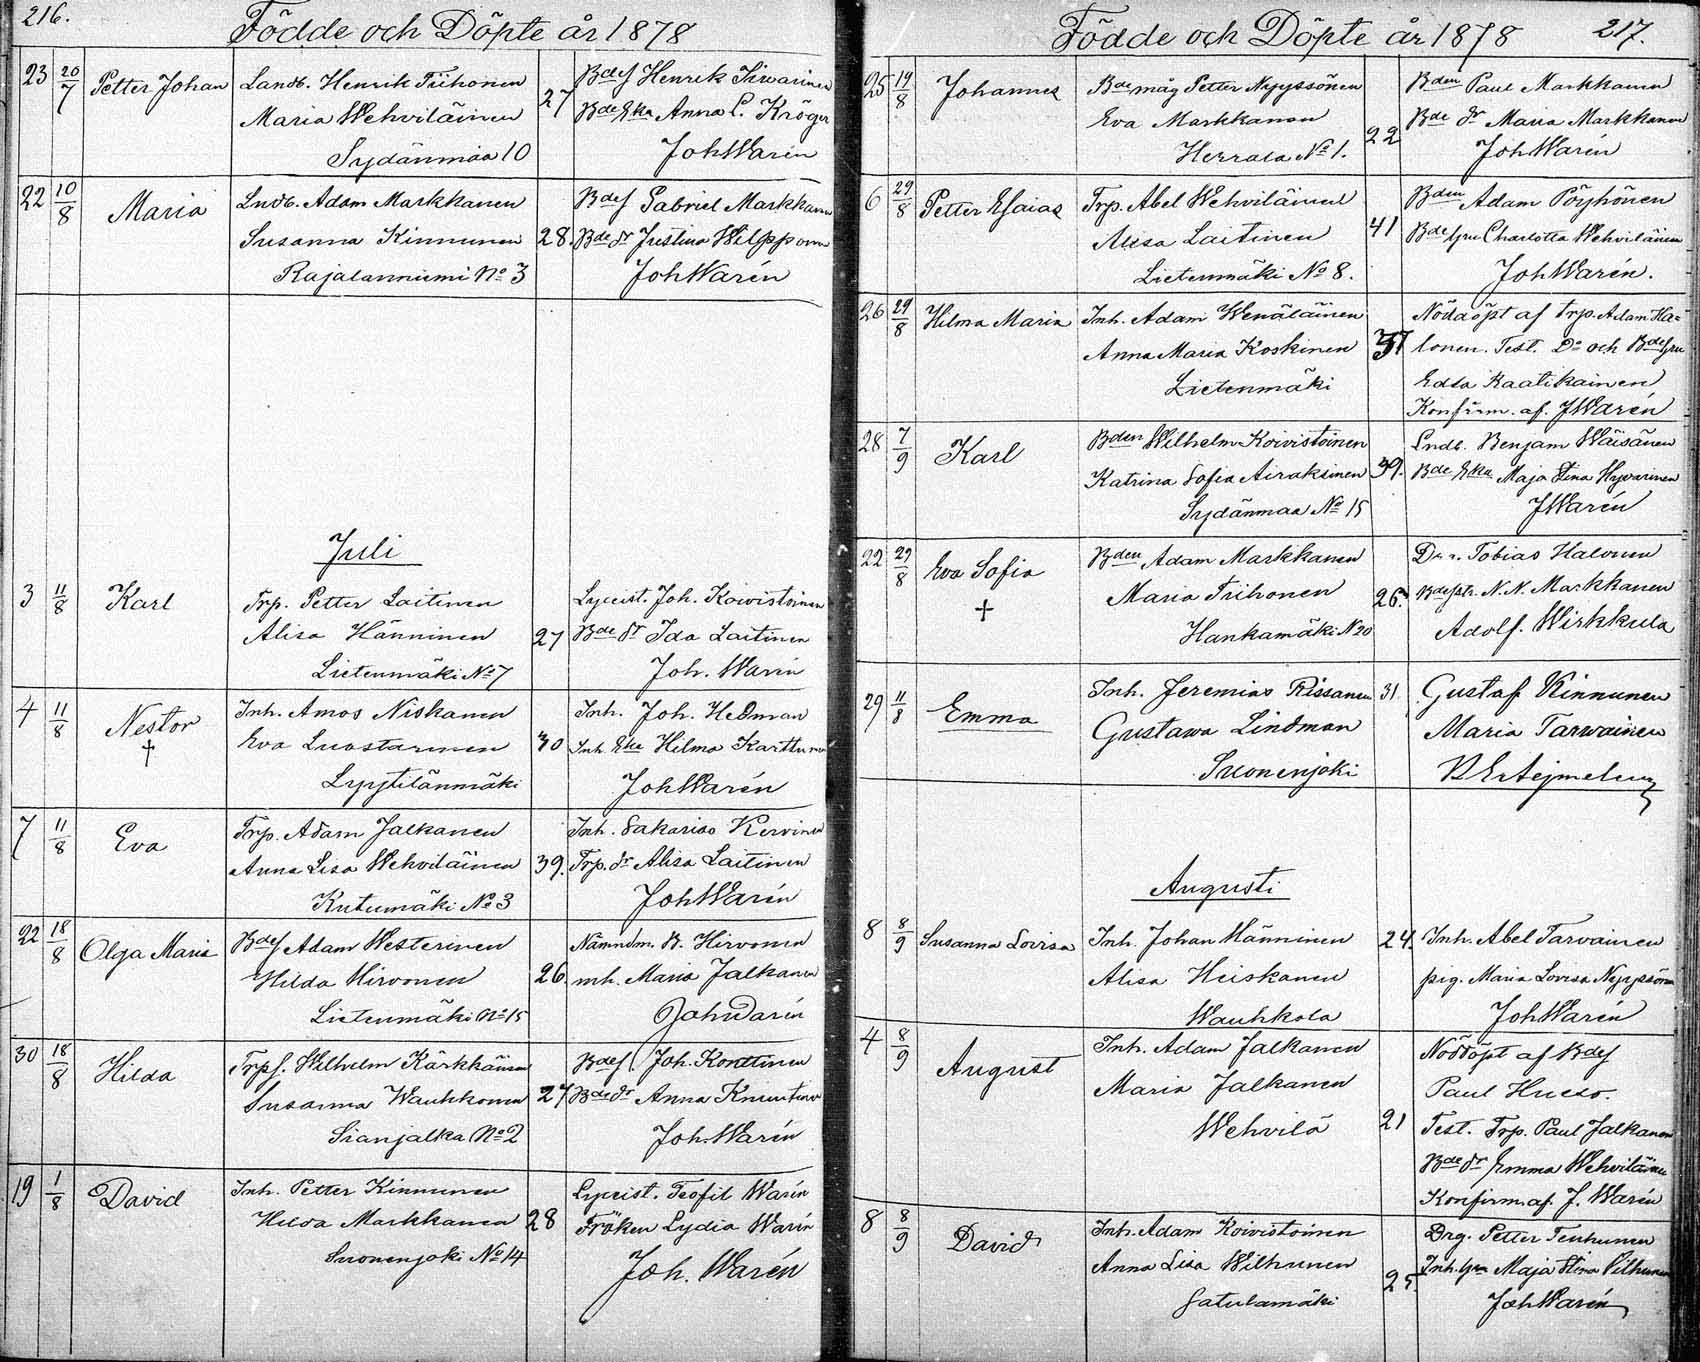 216.
Födde och Döpte år 1878
23 20/7 Petter Johan Landb. Henrik Tiihonen Bdes Henrik
Maria Wehviläinen 27 Bde Eka Anna C. Kröger
Sydänmaa 10 JohWarén
22 10/8 Maria Lndb. Adam Markkanen Bdes Gabriel Markkanen
Susanna Kinnunen 28. Bde dr Justina Wilpponen
Rajalanniemi No 3 JohWarén
Juli
3 11/8 Karl Trp. Petter Laitinen Lyceist. Joh. Koivistoinen
Alisa Hänninen 27 Bde dr Ida Laitinen
Lietenmäki No 7 Joh. Warén
4 11/8 Nestor Inh. Amos Niskanen Inh. Joh. Hedman
† Eva Luostarinen 30 Inh. Eka Hilma Karttunen
Lyytilänmäki JohWarén
7 11/8 Eva Trp. Adam Jalkanen Inh. Sakarias Kervinen
Anna Lisa Wehviläinen 39. Trp. dr Alisa Laitinen
Kutumäki No 3 JohWarén
22 18/8 Olga Maria Bdes Adam Westerinen Nämndm. B. Hirvonen
Hilda Hirvonen 26. mh. Maria Jalkanen
Lietenmäki No 15 JohWarén
30 18/8 Hilda Trps. Wilhelm Kärkkäinen Bdes Joh. Konttinen
Susanna Wauhkonen 27 Bde dr Anna Knuutinen
Sianjalka No 2 Joh. Warén
19 1/8 David Inh. Petter Kinnunen Lyceist. Teofil Warén
Hilda Markkanen 28 Fröken Lydia Warén
Suonenjoki No 14 Joh. Warén
Födde och Döpte år 1878 217.
25 19/8 Johannes Bde måg Petter Nyyssönen Bden Paul Markkanen
Eva Markkanen 22 Bde dr Maria Markkanen
Herrala No 1. JohWarén
6 29/8 Petter Esaias Trp. Abel Wehviläinen Bden Adam Pöyhönen
Alisa Laitinen 41 Bde hru Charlotta Wehviläinen
Lietenmäki No 8. JohWarén.
26 29/8 Hilma Maria Inh. Adam Wenäläinen Nöddöpt af Trp. Adam Ha=
Anna Maria Koskinen 37 lonen. Test. Do och Bde hru
Lietenmäki Edla Raatikainen
Konfirm. af. JWarén
28 7/9 Karl Bden Wilhelm Koivistoinen Lndb. Benjam Wäisänen
Katrina Sofia Airaksinen 39. Bde Eka Maja Stina Hyvärinen
Sydänmaa No 15 JWarén
22 29/8 Eva Sofia Bden Adam Markkanen Tobias Halonen
† Maria Tiihonen 26. N. N. Markkanen
Hankamäki N 20 Adolf. Wirkkula
29 11/8 Emma Inh. Jeremias Rissanen 31 Gustaf Kinnunen
Gustava Lindman Maria Tarwainen
Suonenjoki
Augusti
8 8/9 Susanna Lovisa Inh. Johan Hänninen 24. Inh. Abel Tarvainen
Alisa Heiskanen pig. Maria Lovisa Nyyssönen
Wauhkola JohWarén
4 8/9 August Inh. Adam Jalkanen Nöddöpt af Bdes
Maria Jalkanen Paul Husso.
Wehvilä 21 Test. Trp. Paul Jalkanen
Bde dr Emma Wehviläinen
Konfirm. af. J. Warén
8 8/9 David Inh. Adam Koivistoinen Drg. Petter Tenhunen
Anna Lisa Wilhunen 25. Inh. hru Maja Stina Vilhunen
Satulamäki JohWarén